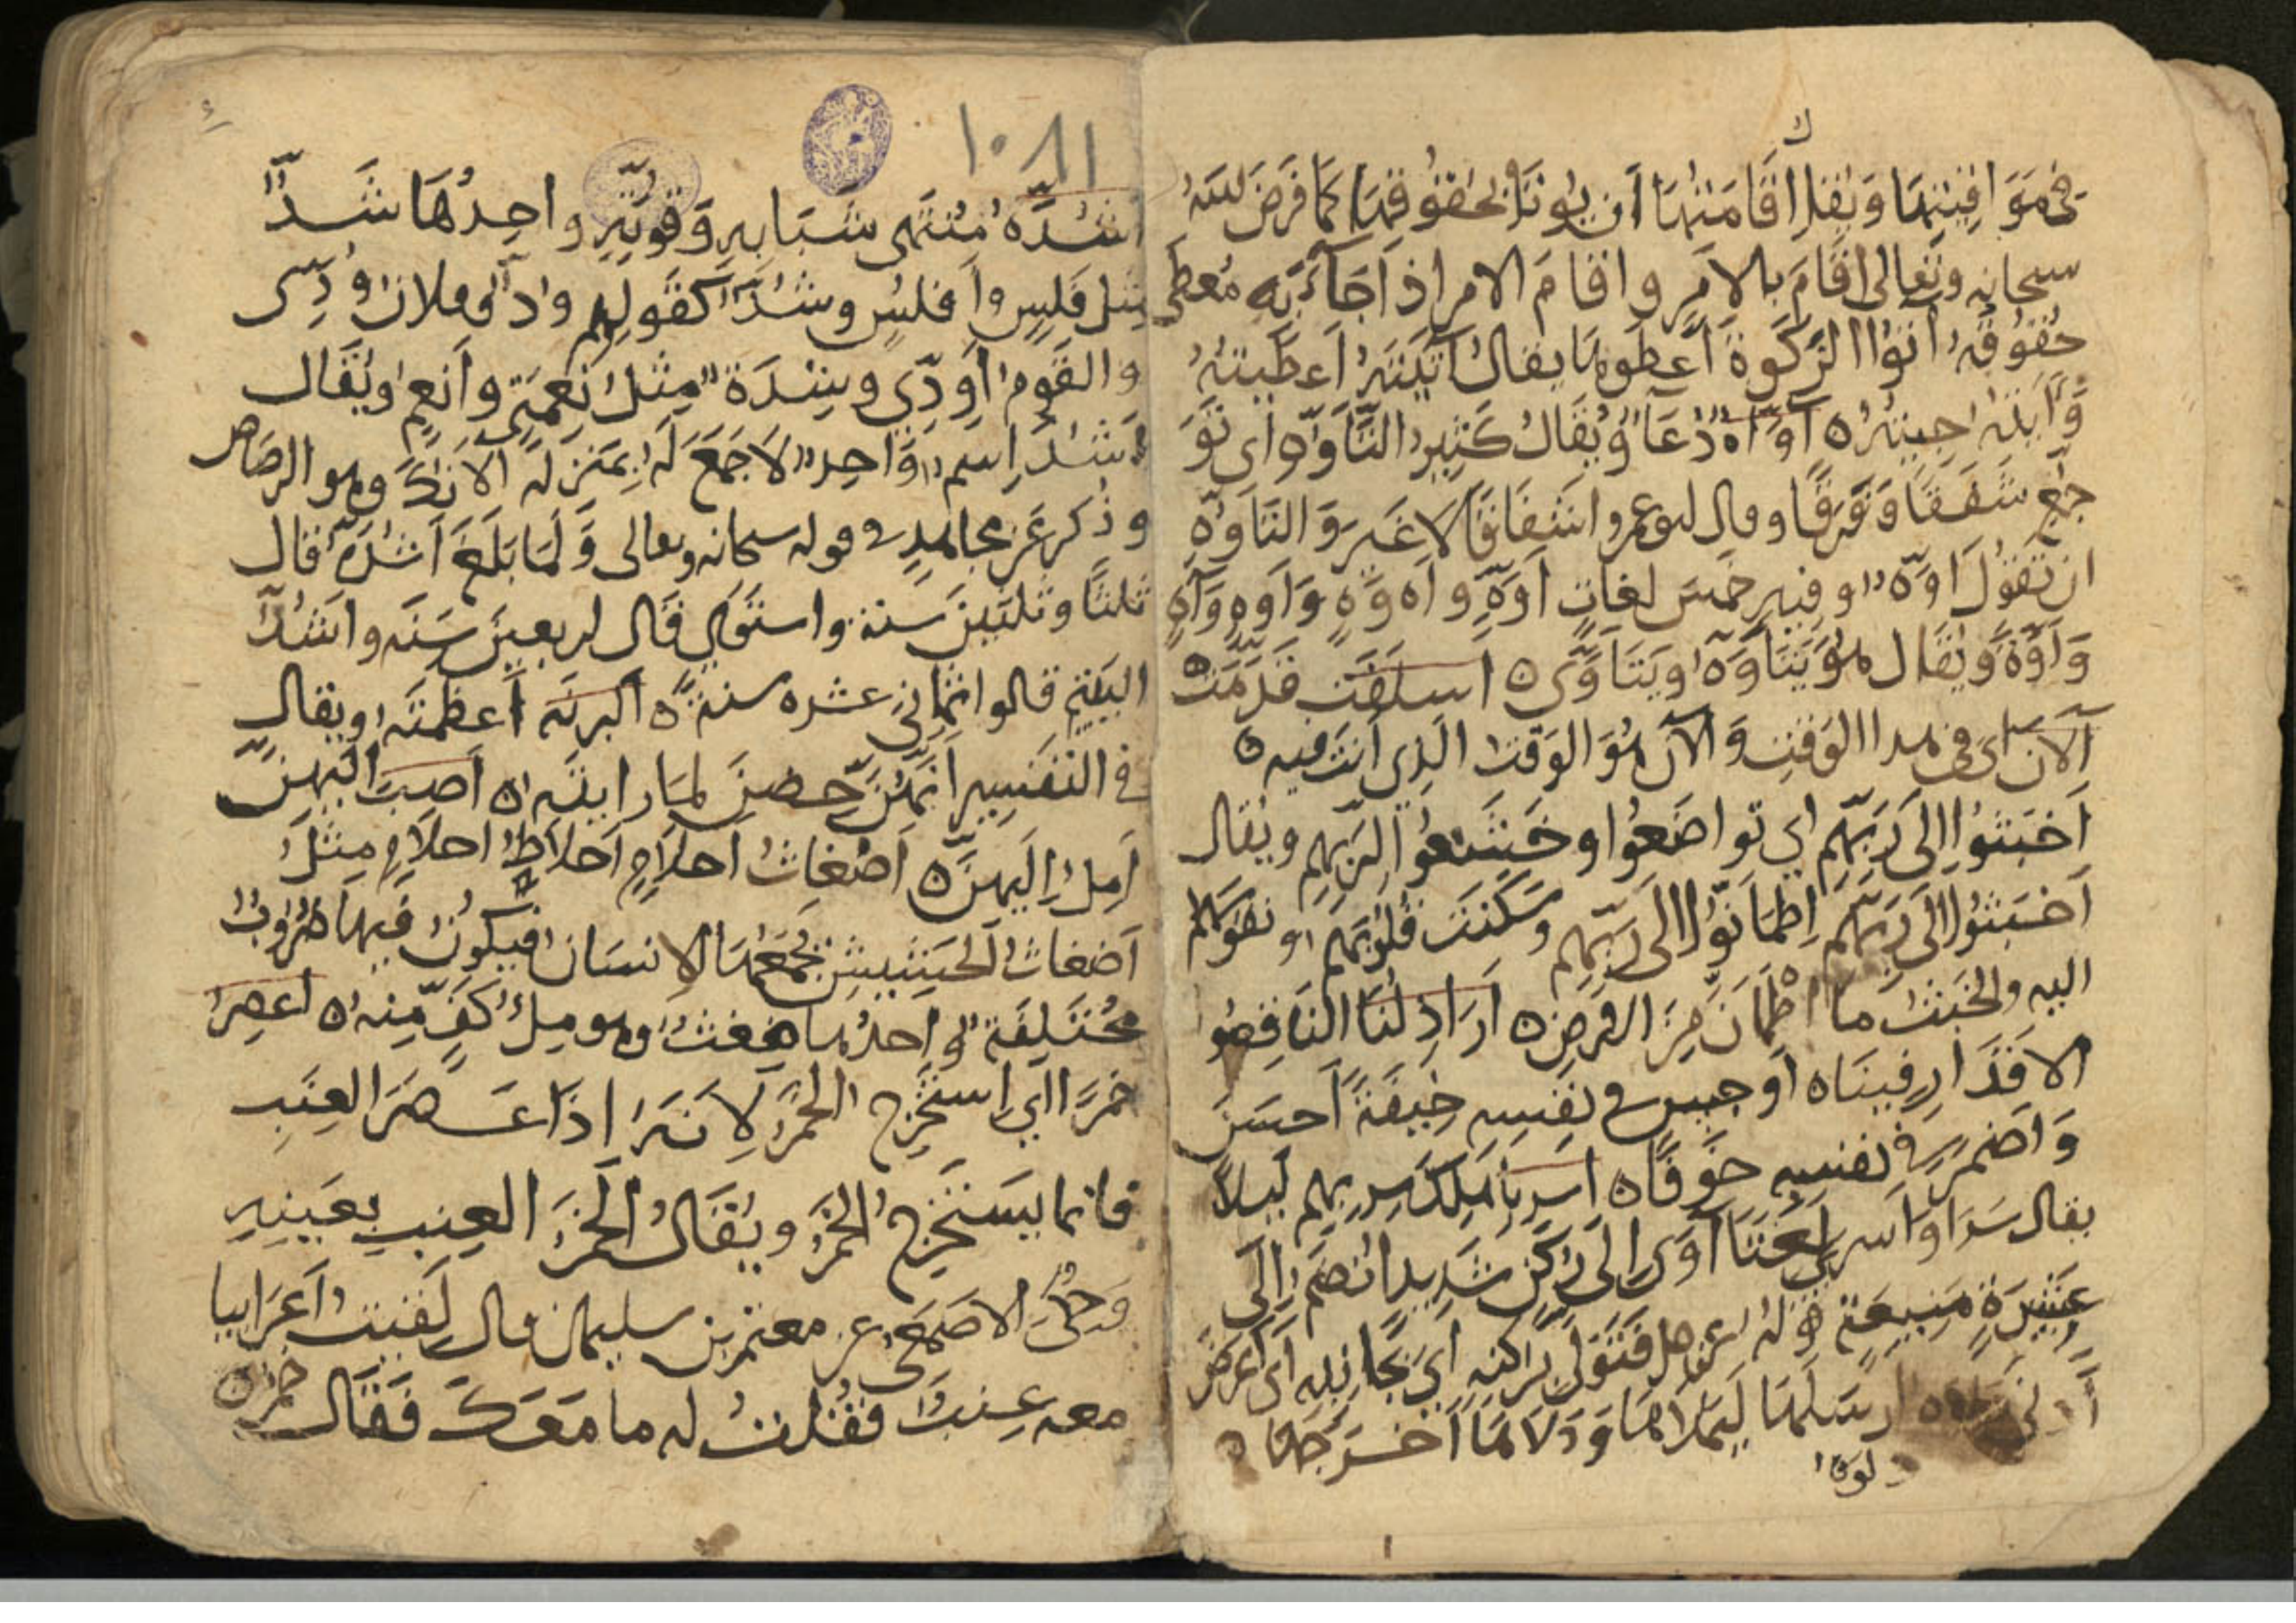 في مواقيتها ويقال اقامتها ان يوتا بحقوقها كما فرض الله
سبحانه وتعالى اقام بالامر واقام الامر اذا جآء به معطى
حقوقه اتوا الزكوة اعطوها يقال آتيته اعطيته
واتيته جيته ه اواه دعا ويقال كثير التاوه اى تو
جع شفقا وفرقا وقال ابو عمرو اشفاقا لا غير والتاوه
ان تقول اوه وفيه خمس لغات اوه و اه وه واوه واه
واوة ويقال هو يتاوه ويتاوى ه اسلفت قدمت
آلآن اى في هدا الوقت والآن هو الوقت الذى انت فيه ه
اخبتوا الى ربهم اي تواضعوا وخشعوا لربهم ويقال
اخبتوا الى ربهم اطمانوا الى ربهم وسكنت قلوبهم ونفوسهم
اليه والخبت ما اطمان من الارض ه اراذلنا الناقصوا
الاقدار فينا ه اوجس في نفسه خيفة احسن
واضمر في نفسه خوفا ه اسر باهلك سر بهم ليلا
يقال سرا واسرى لغتا آوى الى ركن شديد انضم الى
عشيرة منيعة قوله عز وجل فتولى بركنه اي بجانبه اى اعرض
ارسلها ادلا دلوه ليملاها ودلاها اخرجها ه
دلوه
١٠٨١
اشده منتهى شبابه وقوته واحدها شد
مثل فلس وافلس وشد كقولهم ود وفلان ودى
والقوم اودى وشدة مثل نعمة وانعم ويقال
اشد اسم واحد لا جمع له بمنزلة الانك وهو الرصاص
وذكر عن مجاهد في قوله سبحانه وتعالى ولما بلغ اشده قال
ثلثا وثلثين سنة واستوى قال اربعين سنه واشد
اليتيم قالوا ثماني عشره سنة ه اكبرنه اعظمنه ويقال
في التفسير انهن حضن لما راينه ه اصب اليهن
امل اليهن ه اضغاث احلام اخلاط احلام مثل
اضغاث الحشيش يجمعها الانسان فيكون فيها ضروب
مختلفة واحدها ضغث وهو ملء كف منه ه اعصر
خمرا اي استخرج الخمر لانه اذا عصر العنب
فانما يستخرج الخمر ويقال الخمر العنب بعينه
وحكى الاصمعى عن معتمر بن سليمان قال لقيت اعرابيا
معه عنب فقلت له ما معك فقال خمر ه